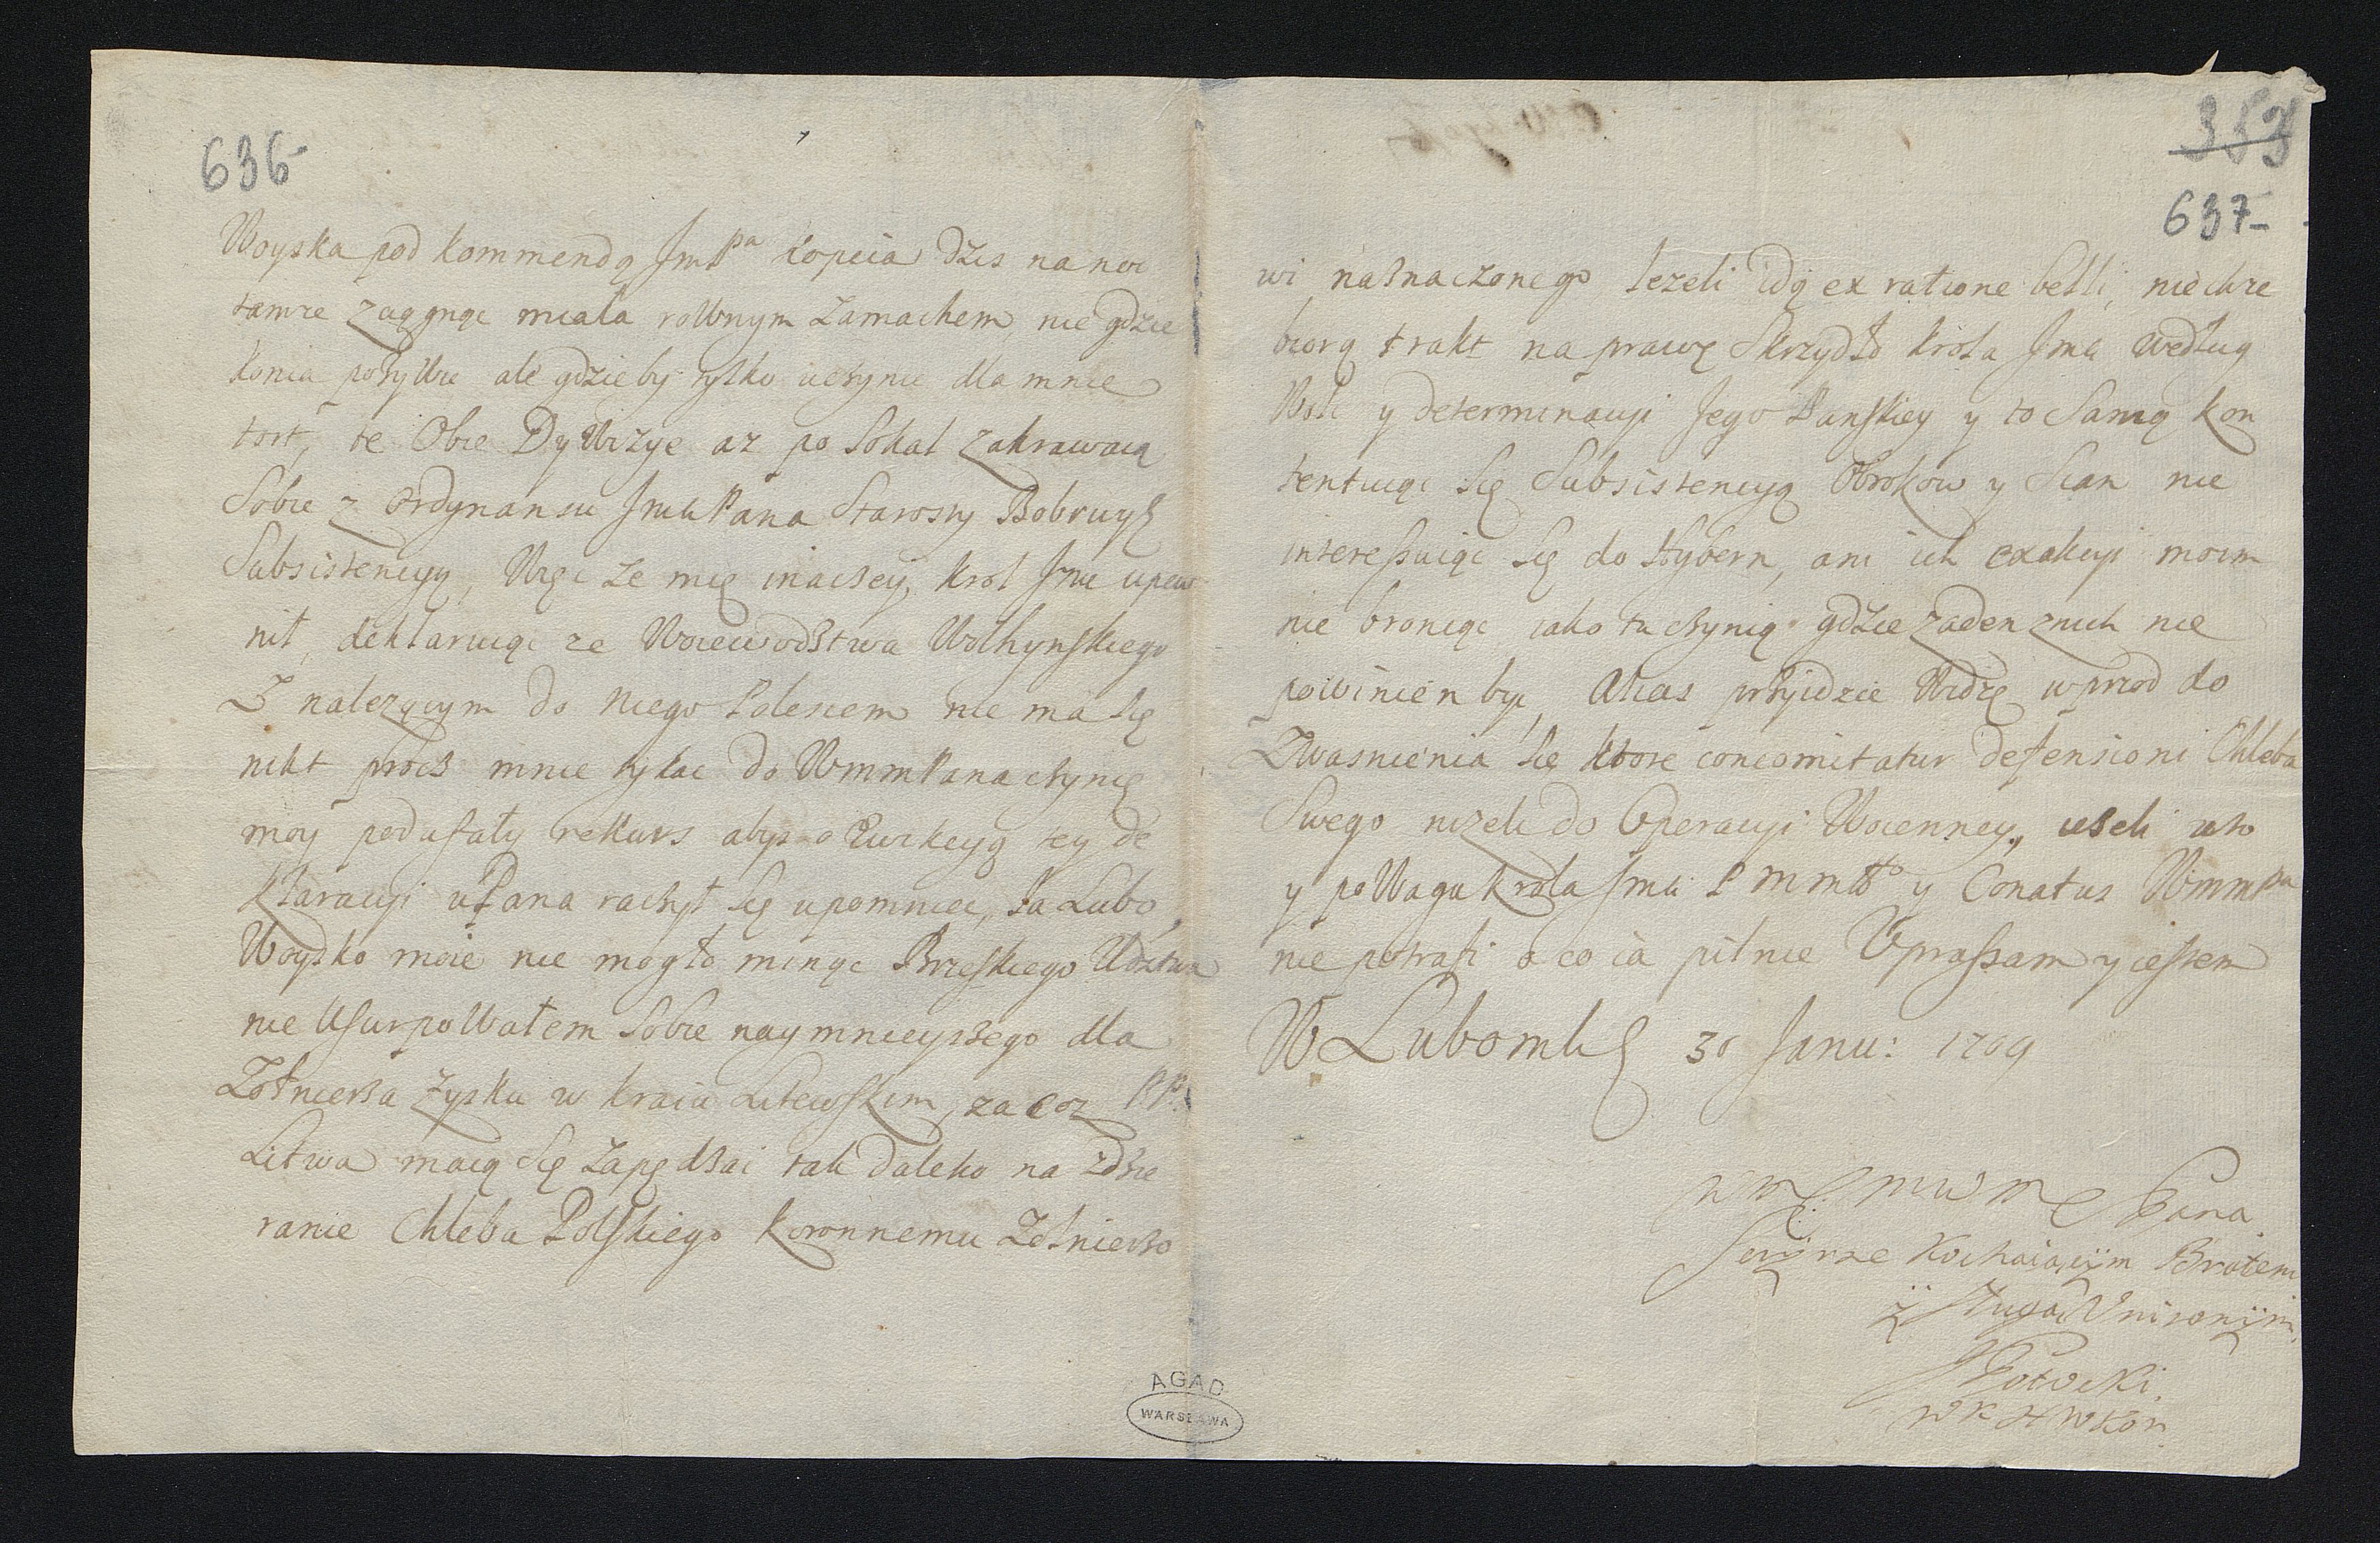 636
Woyska pod kommendą Jmp<sup>a</sup> Kopcia dżis na noc
tamże zaągnąc miała rownym zamachem, nie gdzie
konia posyłku ale gdzie by tylko uczynic dla mnie
tort, te Obie Dywizye az po Sokal zakrawaią
Sobie z Ordynansu JmciPana Starosty Bobruys
Subsistencyą, Wręc ze mię inaczey, krol Jmc upew
nił, deklaruiąc ze Woiewodztwa Wolhynskiego
Z nalezącym do niego Polesiem nie ma się
nikt procz mnie tykac do WmmPana czynię
moy poduſały rekurs abys o Ewikcyą tey de
klaracyi u Pana raczył się upomniec, Ja Lubo
Woysko moie nie mogło minąc Brzeskiego Wdztwa
nie Usurpowałem Sobie naymnieyszego dla
Zołnierza zysku w kraiu Litewskim, za coz PP.
Litwa maią się zapędzac tak daleko na zdzie
ranie Chleba Polskiego Koronnemu Zołnierzo
353
637
wi naznaczonego Jezeli idą ex ratione belli, niechze
biorą trakt na prawę Skrzydło krola Jmci według
Woli y determinacyi Jego Panskiey y to Samą kon
tentuiąc się Subsistencyą Obrokow y Sian nie
interessuiąc Się do Hybern, ani ich exakcyi moim
nie broniąc iako tu czynią gdzie zaden znich nie
powinien byc, Alias przyidzie Widzę wprzod do
Zwasnienia Się ktore concomitatur defensioni Chleba
Swego nizeli do Operacyi Woienney, iezeli w to
y powaga krola Jmci P m mwo y Conatus Wmmpa
nie potrafi o co ia pilnie Upraszam y iestem
W Lubomlu 30 Janu: 1709
Wm mm Pana
Sczyrze Kochaiącym Bratem
ÿ sługą Unizonÿm
J Potocki
W K H W Kor
AGAD
WARSZAWA